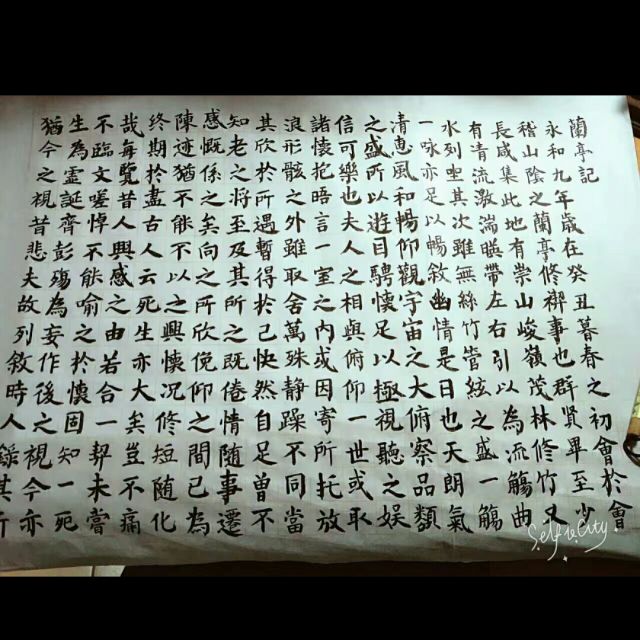 蘭亭記
永和九年歲在癸丑暮春之初會於會
稽山陰之蘭亭修禊事也群賢畢至少
長咸集此地有崇山峻嶺茂林修竹又
有清流激湍暎帶左右引以為流觴曲
水列坐其次雖無絲竹管絃之盛一觴
一咏亦足以暢敘幽情是日也天朗氣
清惠風和暢仰觀宇宙之大俯察品類
之盛所以遊目騁懷足以極視聽之娛
信可樂也夫人之相與俯仰一世或取
諸懷抱晤言一室之內或因寄所托放
浪形骸之外雖取舍萬珠静躁不同當
其欣於所遇暫得於己快然自足曾不
知老之將至及其所之既倦情隨事遷
感慨係之矣向之所欣俛仰之間已為
陳迹猶不能不以之興懷况修短隨化
終期於盡古人云死生亦大矣豈不痛
哉每覽昔人興感之由若合一契未嘗
不臨文嗟悼不能喻之於懷固知一死
生為虛誕齊彭殤為妄作後之視今亦
猶今之視昔悲夫故列敘時人錄其所
Self to City